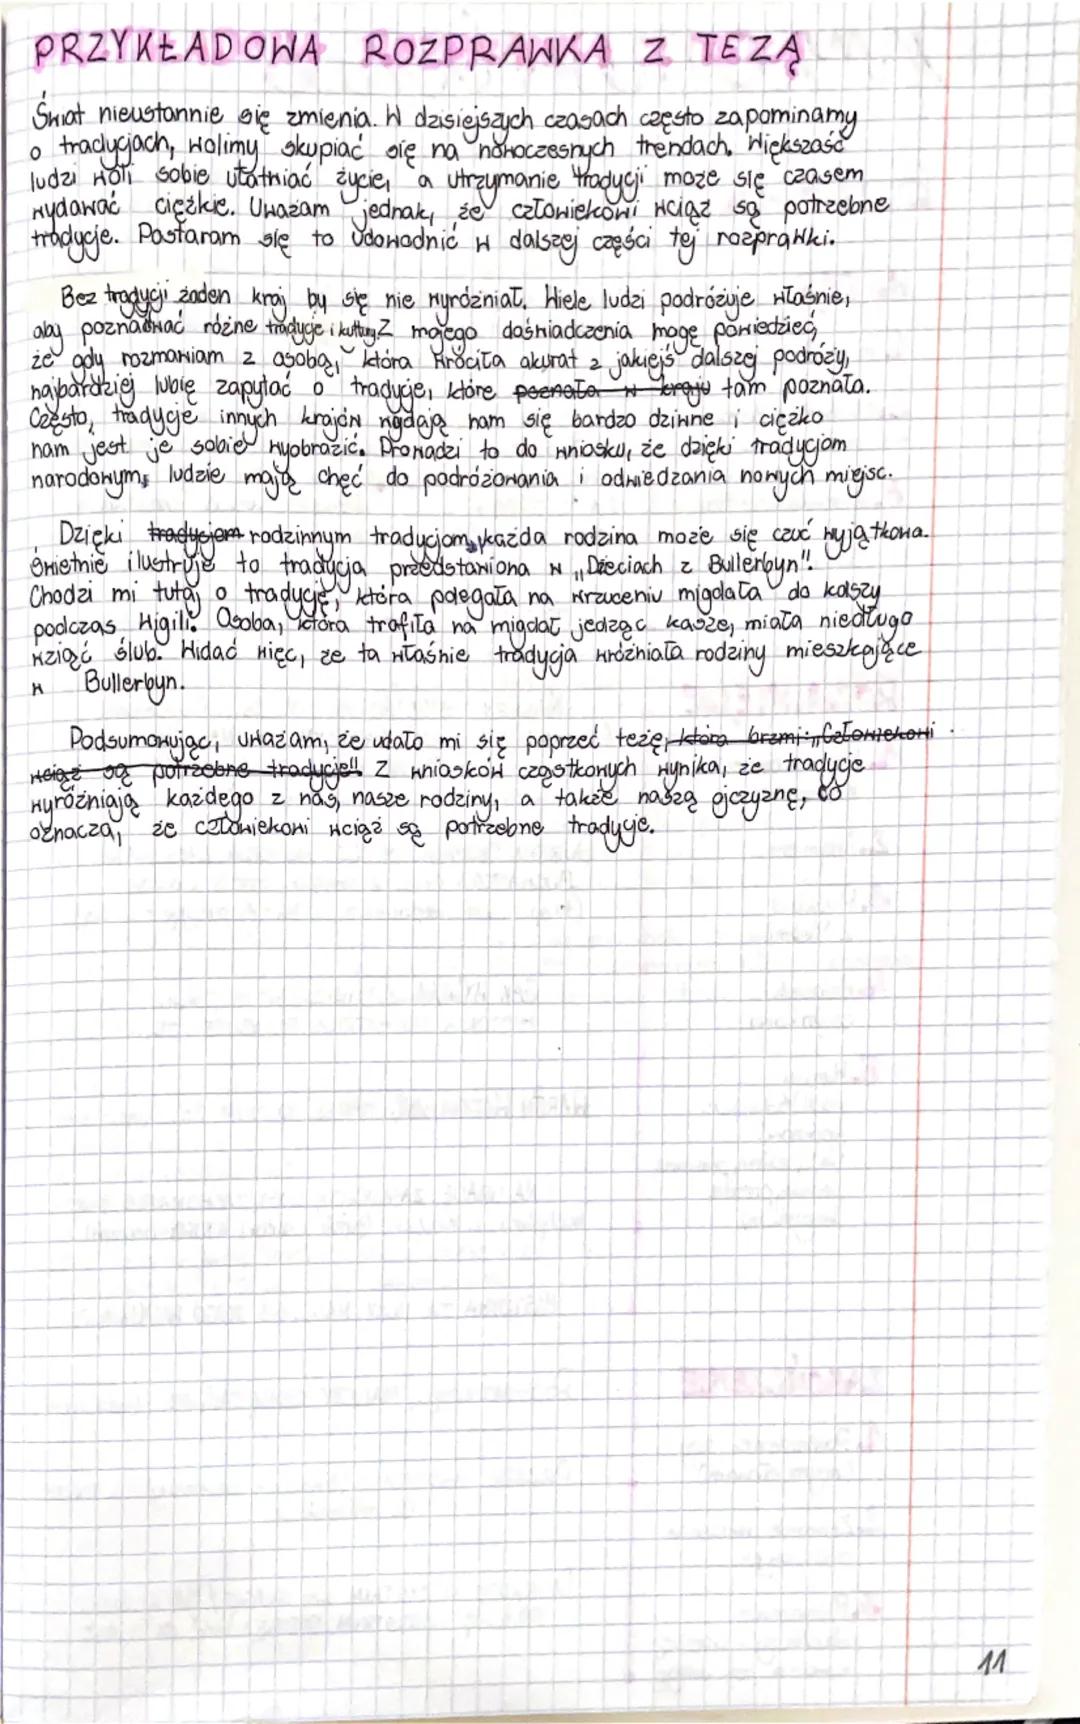 PRZYKŁADOWA ROZPRAWKA Z TEZĄ
Świat nieustannie się zmienia. W dzisiejszych czasach często zapominamy
o tradycjach, wolimy skupiać się na nowoczesnych trendach. Większość
ludzi woli sobie ułatwiać życie, a utrzymanie tradycji może się czasem
wydawać ciężkie. Uważam jednak, że człowiekowi wciąż są potrzebne
tradycje. Postaram się to udowodnić w dalszej części tej rozprawki.
Bez tradycji żaden kraj by się nie wyróżniał. Wiele ludzi podróżuje właśnie,
aby poznawać różne tradycje i kultury. Z mojego doświadczenia mogę powiedzieć,
że gdy rozmawiam z osobą, która wróciła akurat z jakiejś dalszej podróży,
najbardziej lubię zapytać o tradycje, które poznała w kraju tam poznała.
Często, tradycje innych krajów wydają nam się bardzo dziwne i ciężko
nam jest je sobie wyobrazić. Prowadzi to do wniosku, że dzięki tradycjom
narodowym, ludzie mają chęć do podróżowania i odwiedzania nowych miejsc.
Dzięki tradycjom rodzinnym tradycjom, każda rodzina może się czuć wyjątkowa.
Świetnie ilustruje to tradycja przedstawiona w „Dzieciach z Bullerbyn".
Chodzi mi tutaj o tradycję, która polegała na wrzuceniu migdała do kaszy
podczas Wigili. Osoba, która trafiła na migdał jedząc kaszę, miała niedługo
wziąć ślub. Widać więc, że ta właśnie tradycja wróżniała rodziny mieszkające
w Bullerbyn.
Podsumowując, uważam, że udało mi się poprzeć tezę, która brzmi: „Człowiekowi
wciąż są potrzebne tradycje". Z wniosków cząstkowych wynika, że tradycje
wyróżniają każdego z nas, nasze rodziny, a także naszą ojczyznę, co
oznacza, że człowiekowi wciąż są potrzebne tradycje.
11